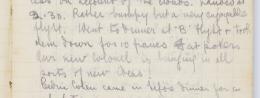 was on account of the clouds. Landed at
2.30. Rather bumpy but a very enjoyable
flight. Went to dinner at 'B' Flight & took
them down for 10 francs at poker.
Our new Colonel is bringing in all
sorts of new ideas!
came in before dinner for a